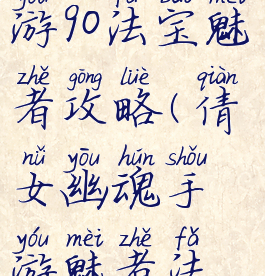 游90法宝魅
zhě gōng lüè qiàn
者攻略(倩
nǚ yōu hún shǒu
女幽魂手
yóu mèi zhě fǎ
游魅者法